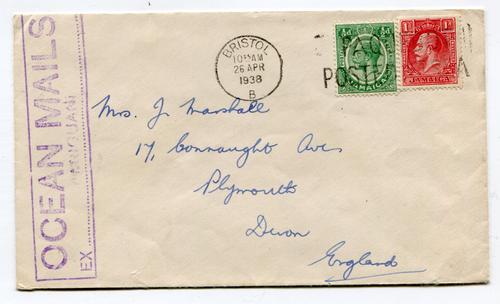 OCEAN MAILS
EX
BRISTOL
10 AM
26 APR
1938
B
POST
A
½d
JAMAICA
1d
1d
JAMAICA
Mrs. J. Marshall
17, Connaught Ave.
Plymouth
Devon
England